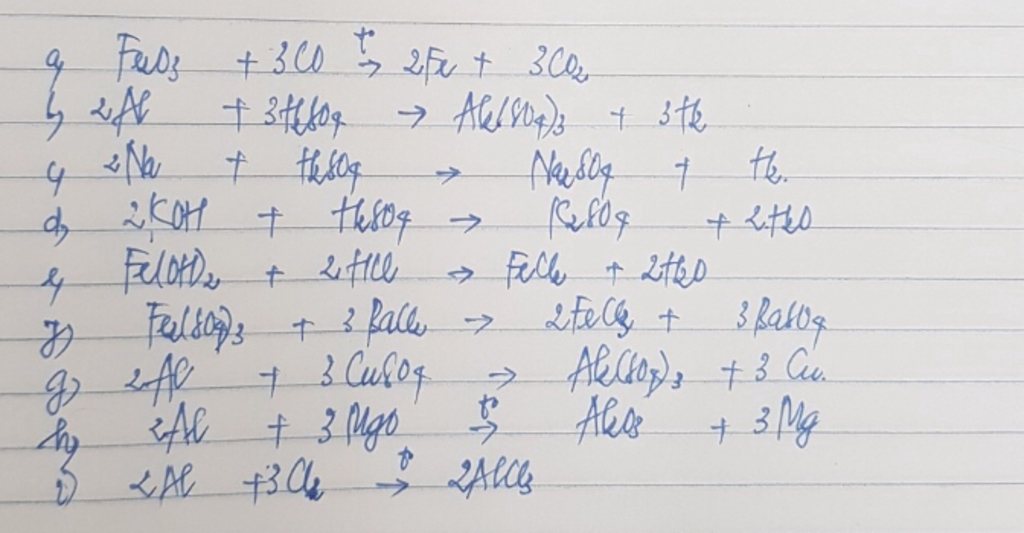 a) Fe2O3 + 3CO t°→ 2Fe + 3CO2
b) 2Al + 3H2SO4 → Al2(SO4)3 + 3H2
c) 2Na + H2SO4 → Na2SO4 + H2.
d) 2KOH + H2SO4 → K2SO4 + 2H2O
e) Fe(OH)2 + 2HCl → FeCl2 + 2H2O
f) Fe2(SO4)3 + 3BaCl2 → 2FeCl3 + 3BaSO4
g) 2Al + 3CuSO4 → Al2(SO4)3 + 3Cu.
h) 2Al + 3MgO t°→ Al2O3 + 3Mg
i) 2Al + 3Cl2 t°→ 2AlCl3